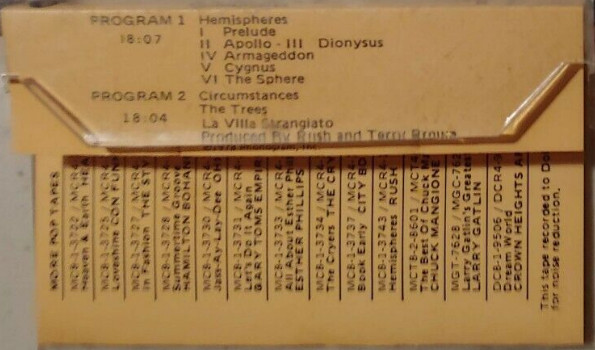 PROGRAM 1 Hemispheres
18:07 I Prelude
II Apollo - III Dionysus
IV Armageddon
V Cygnus
VI The Sphere
PROGRAM 2 Circumstances
The Trees
18:04
La Villa Strangiato
Produced By Rush and Terry Brown
Phonogram, Inc.
MORE POP TAPES
MC8-1-3722 / MCR4-
Heaven & Earth
MC8-1-3725 / MCR4-
Loveshine CON FUN
MC8-1-3727 / MCR4-
In Fashion THE STY
MC8-1-3728 / MCR4-
Summertime Groove
HAMILTON BOHAN
MC8-1-3730 / MCR4-
Jass-Ay-Lay-Dee OH
MC8-1-3731 / MCR4-
Let's Do It Again
GARY TOMS EMPIR
MC8-1-3733 / MCR4-
All About Esther Ph
ESTHER PHILLIPS
MC8-1-3734 / MCR4-
The Cryers THE CRY
MC8-1-3737 / MCR4-
Book Early CITY BO
MC8-1-3743 / MCR4-
Hemispheres RUSH
MCT8-2-8601 / MCT4
The Best Of Chuck Ma
CHUCK MANGIONE
MGT-7628 / MGC-762
Larry Gatlin's Greates
LARRY GATLIN
DC8-1-9506 / DCR4-9
Dream World
CROWN HEIGHTS A
This tape recorded to Do
for noise reduction.